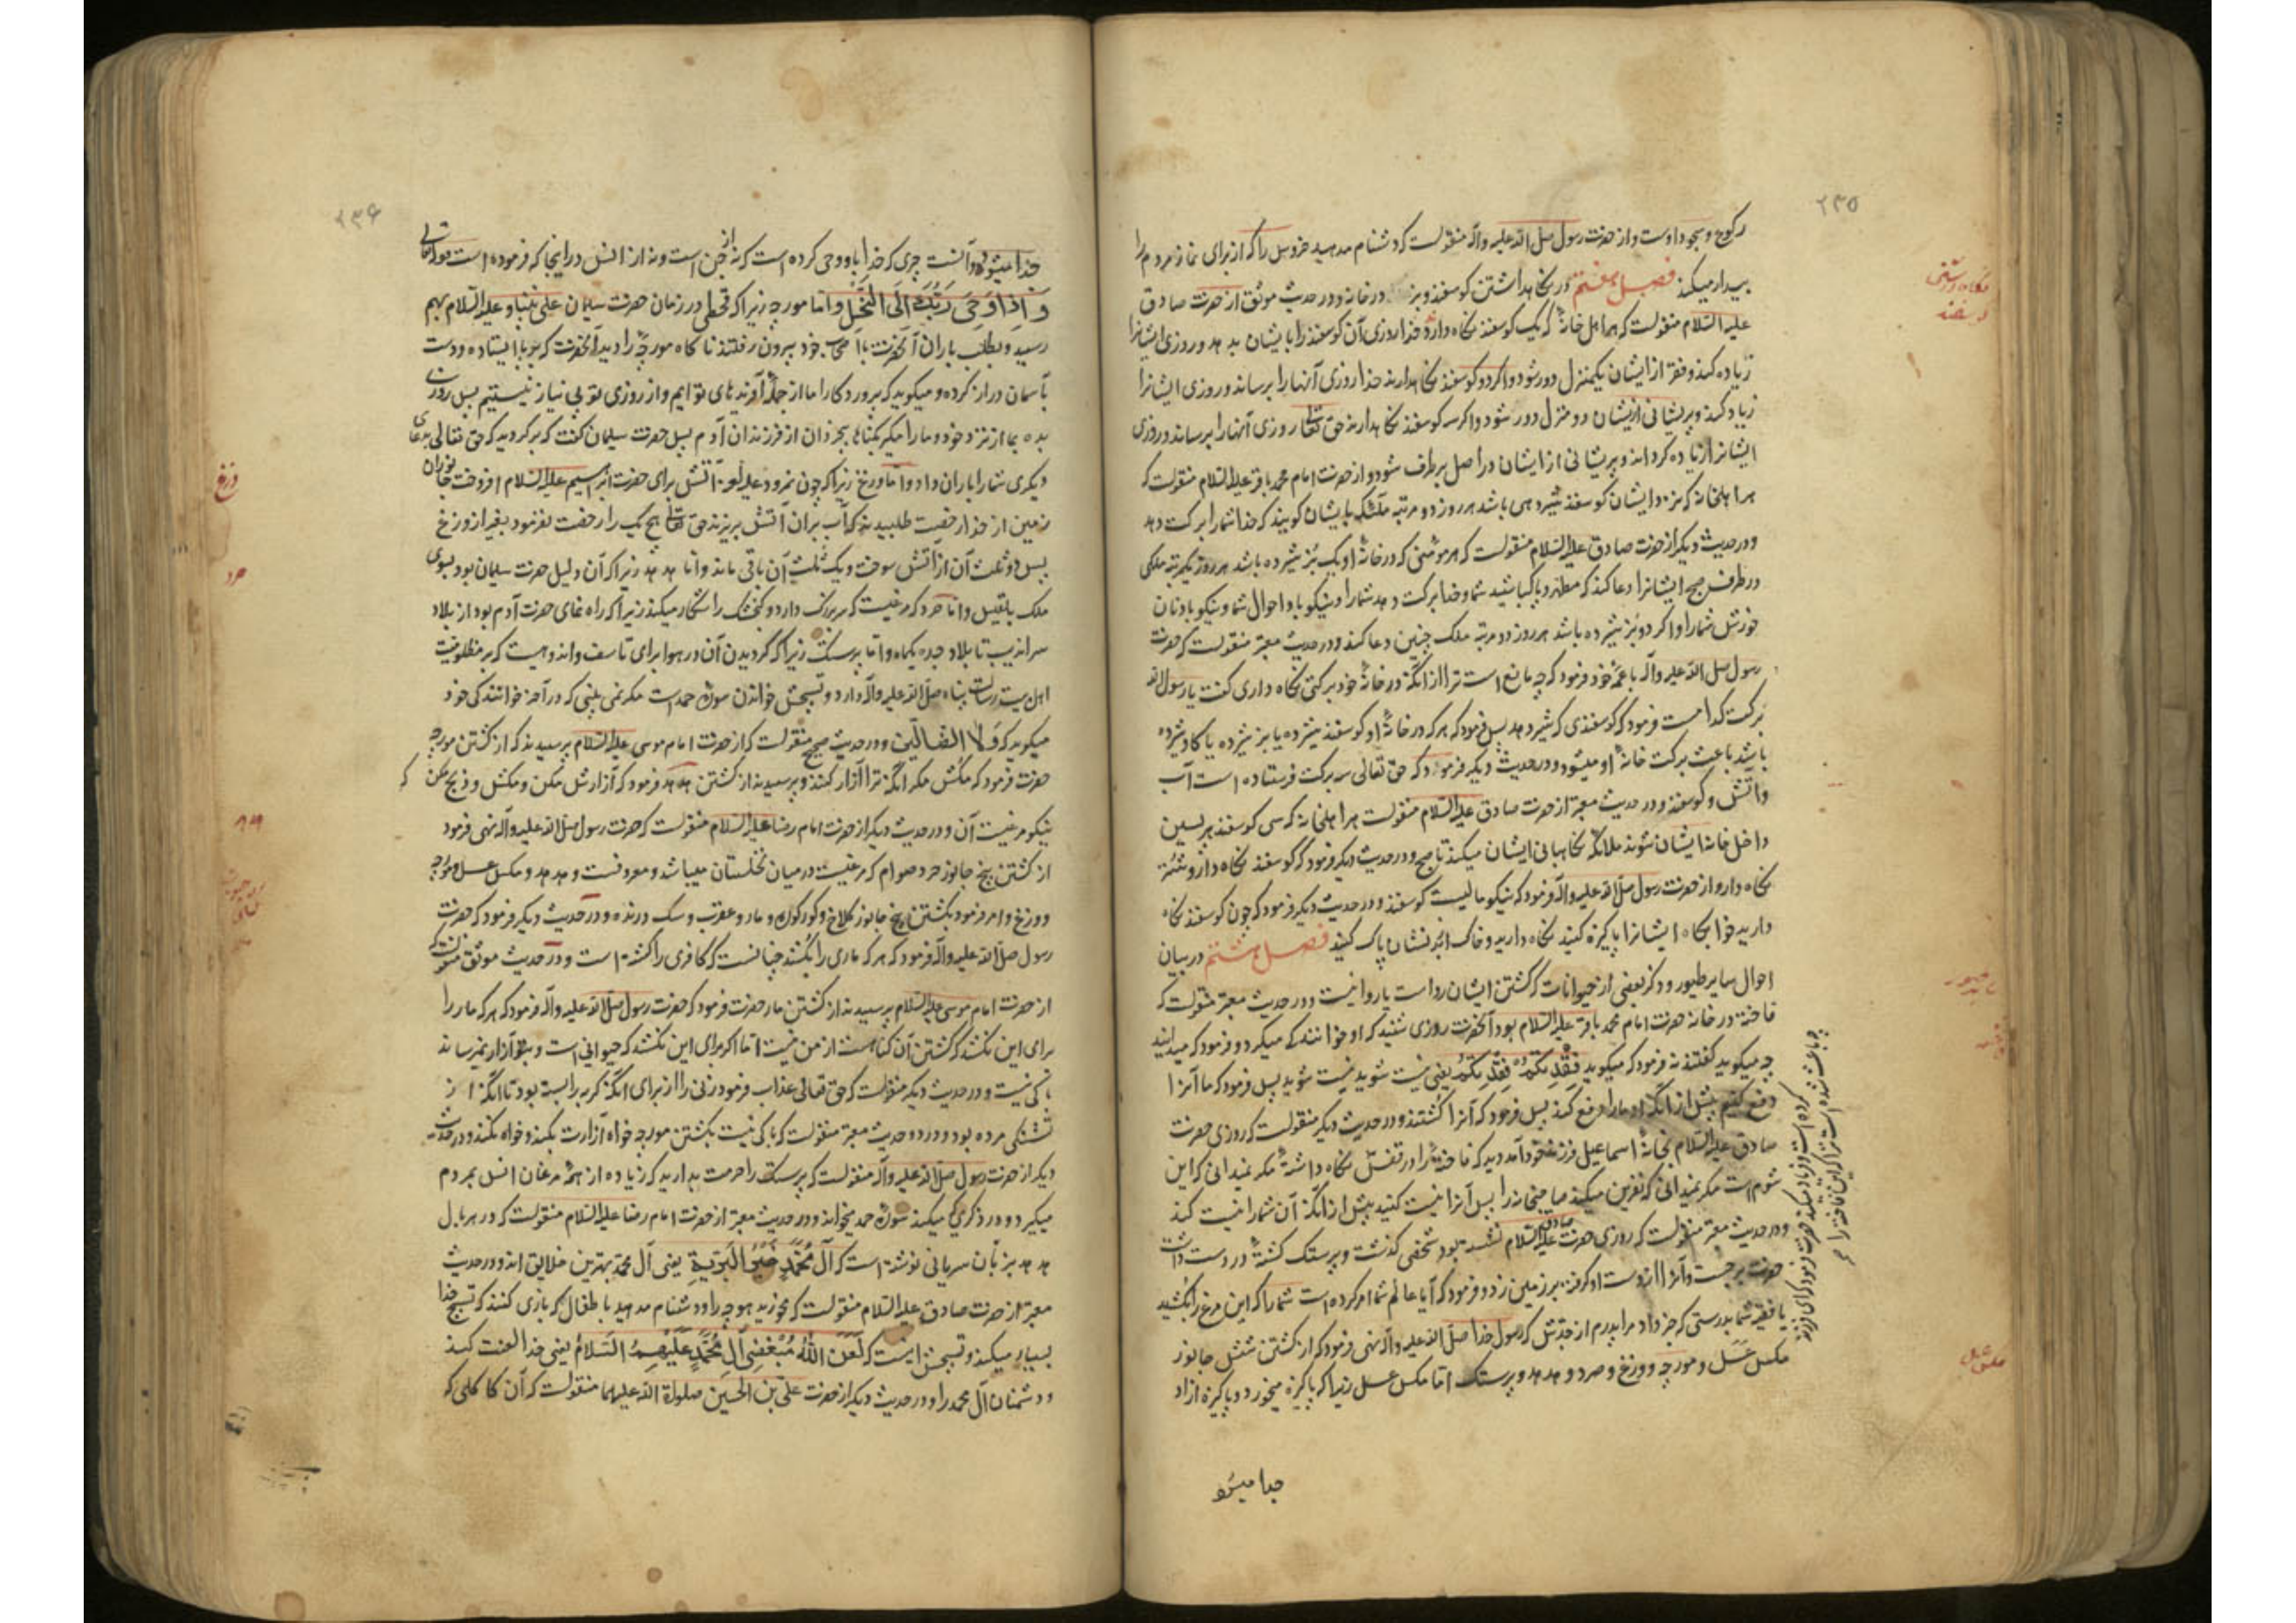 ۲۳۵
رکوع و سجود اوست و از حضرت رسول صلی الله علیه و آله منقولست که دشنام مدهید خروس را که از برای نماز مردم را
بیدار میکند فصل هفتم در نکاهداشتن کوسفند و بز در خانه و در حدیث موثق از حضرت صادق
علیه السلام منقولست که هر اهل خانهٔ که یک کوسفند نکاه دارد خدا روزی آن کوسفند را بایشان بدهد و روزی ایشانرا
زیاده کند و فقر از ایشان یکمنزل دور شود و اکر دو کوسفند نکاهدارند خدا روزی آنها را برساند و روزی ایشانرا
زیاد کند و پریشانی ازیشان دو منزل دور شود و اکر سه کوسفند نکاهدارند حق تعالی روزی آنها را برساند و روزی
ایشانرا زیاده کرداند و پریشانی از ایشان در اصل برطرف شود و از حضرت امام محمد باقر علیه السلام منقولست که
هر اهلخانه که نزد ایشان کوسفند شیردهی باشد هر روز دو مرتبه ملکی بایشان کویند که خدا شما را برکت دهد
و در حدیث دیکر از حضرت صادق علیه السلام منقولست که هر مومنی که در خانهٔ او یک بز شیرده باشد هر روز یکمرتبه ملکی
در طرف صبح ایشانرا دعا کند که مطهر و پاک باشید شما و خدا برکت دهد شما را و نیکو باد احوال شما و نیکو باد نان
خورش شما را و اکر دو بز شیرده باشد هر روز دو مرتبه ملک چنین دعا کند و در حدیث معتبر منقولست که حضرت
رسول صلی الله علیه و آله با عمهٔ خود فرمود که چه مانع است ترا از انکه در خانهٔ خود برکتی نکاه داری کفت یا رسول الله
برکت کدامست فرمود که کوسفندی که شیر دهد پس فرمود که هر که در خانهٔ او کوسفند شیرده یا بز شیرده یا کاو شیرده
باشد باعث برکت خانهٔ او میشود و در حدیث دیکر فرمود که حق تعالی سه برکت فرستاده است آب
و آتش و کوسفند و در حدیث معتبر از حضرت صادق علیه السلام منقولست هر اهلخانه که سی کوسفند پسین
داخل خانهٔ ایشان شوند ملائکه نکاهبانی ایشان میکنند تا صبح و در حدیث دیکر فرمود که کوسفند نکاه دار و شتر
نکاه دار و از حضرت رسول صلی الله علیه و آله فرمود که نیکو مالیست کوسفند و در حدیث دیکر فرمود که چون کوسفند نکاه
دارید خوابکاه ایشانرا پاکیزه کنید نکاه دارید و خاک از بدنشان پاک کنید فصل هشتم در بیان
احوال سایر طیور و ذکر بعضی از حیوانات که کشتن ایشان رواست یا روا نیست و در حدیث معتبر منقولست که
فاخته در خانه حضرت امام محمد باقر علیه السلام بود آنحضرت روزی شنید که او خوانندکی میکرد و فرمود که میدانید
چه میکوید کفتند نه فرمود که میکوید فقدتکم فقدتکم یعنی نیست شوید نیست شوید پس فرمود که ما آنرا
دفع کنیم پیش از انکه او ما را دفع کند پس فرمود که آنرا کشتند و در حدیث دیکر منقولست که روزی حضرت
صادق علیه السلام بخانهٔ اسماعیل فرزند خود آمد دید که فاختهٔ را در قفس نکاه داشته
شوم است مکر نمیدانی که نفرین میکند صاحبخانه را پس آنرا نیست کنید پیش از انکه آن شما را نیست کند
و در حدیث معتبر منقولست که روزی حضرت صادق علیه السلام نشسته بود شخصی کذشت و پرستک کشتهٔ در دست داشت
حضرت برجست و آنرا از دست او کرفته بر زمین زد و فرمود که آیا عالم شما امر کرده است شما را که این مرغ را بکشید
یا فقیه شما بدرستی که خبر داد مرا پدرم از جدش که رسول خدا صلی الله علیه و آله نهی فرمود که از کشتن شش جانور
مکس عسل و مورچه و وزغ و صرد و هدهد و پرستک اما مکس عسل زیرا که پاکیزه میخورد و پاکیزه ازاو
جدا میشود
مکس عسل
۲۳۶
جدا میشود و آنست چیزی که خدا باو وحی کرده است که نه از جن است و نه از انس در اینجا که فرموده است قوله تعالی
وَ اِذ اَوحَی رَبُّكَ اِلَی النَّحلِ و اما مورچه زیرا که قحطی در زمان حضرت سلیمان علی نبینا و علیه السلام بهم
رسید و بطلب باران آنحضرت با اصحاب خود بیرون رفتند ناکاه مورچهٔ را دید آنحضرت که بر پا ایستاده و دست
بآسمان دراز کرده و میکوید که پروردکارا ما از جمله آفریدهای تو ایم و از روزی تو بی نیاز نیستیم پس روزی
بده بما از نزد خود و ما را مکیر بکناهٔ بیخردان از فرزندان آدم پس حضرت سلیمان کفت که برکردید که حق تعالی بدعای
دیکری شما را باران داد و اما وزغ زیرا که چون نمرود علیه اللعنه آتش برای حضرت ابراهیم علیه السلام افروخت جانوران
زمین از خدا رخصت طلبیدند که آب بر ان آتش بریزند حق تعالی هیچ یک را رخصت نفرمود بغیر از وزغ
پس دو ثلث آن از آتش سوخت و یک ثلث آن باقی ماند و اما هدهد زیرا که آن دلیل حضرت سلیمان بود بسوی
ملک بلقیس و اما صرد که مرغیست که سر بزرک دارد و کنجشک را شکار میکند زیرا که راه نمای حضرت آدم بود از بلاد
سراندیب تا بلاد جده یکماه و اما پرستک زیرا که کردیدن آن در هوا برای تاسف و اندوهیست که بر مظلومیت
اهل بیت رسالت پناه صلی الله علیه و آله دارد و تسبیحش خواندن سورهٔ حمدست مکر نمی بینی که در آخر خوانندکی خود
میکوید که وَلَا الضّالّین و در حدیث صحیح منقولست که از حضرت امام موسی علیه السلام پرسیدند که از کشتن مورچه
حضرت فرمود که مکش مکر انکه ترا آزار کند و پرسیدند از کشتن هدهد فرمود که آزارش مکن و مکش و ذبح مکن که
نیکو مرغیست آن و در حدیث دیکر از حضرت امام رضا علیه السلام منقولست که حضرت رسول صلی الله علیه و آله نهی فرمود
از کشتن پنج جانور صرد صوام که مرغیست در میان نخلستان میباشد و معروفست و هدهد و مکس عسل و مورچه
و وزغ و امر فرمود بکشتن پنج جانور کلاغ و کورکوره و مار و عقرب و سک درنده و در حدیث دیکر فرمود که حضرت
رسول صلی الله علیه و آله فرمود که هر که ماری را بکشد چنانست که کافری را کشته است و در حدیث موثق منقولست که
از حضرت امام موسی علیه السلام پرسیدند از کشتن مار حضرت فرمود که حضرت رسول صلی الله علیه و آله فرمود که هر که مار را
برای این نکشد که کشتن آن کناهست از من نیست اما اکر برای این نکشد که حیوانی است و بتو آزار نمیرساند
باکی نیست و در حدیث دیکر منقولست که حق تعالی عذاب فرمود زنی را از برای انکه کربه را بسته بود تا انکه از
تشنکی مرده بود و در دو حدیث معتبر منقولست که باکی نیست بکشتن مورچه خواه آزارت بکند و خواه نکند و در حدیث
دیکر از حضرت رسول صلی الله علیه و آله منقولست که پرستک را حرمت بدارید که زیاده از همهٔ مرغان انس بمردم
میکیرد و در ذکری که میکند سورهٔ حمد میخواند و در حدیث معتبر از حضرت امام رضا علیه السلام منقولست که در هر بال
هدهد بزبان سریانی نوشته است که آلُ مُحَمَّدٍ خَیرُ البَرِیَّةِ یعنی آل محمد بهترین خلایق اند و در حدیث
معتبر از حضرت صادق علیه السلام منقولست که مخورید هوجه را و دشنام مدهید با طفال که بازی کنند که تسبیح خدا
بسیار میکند و تسبیحش اینست که لَعَنَ اللّٰهُ مُبغِضِی آلِ مُحَمَّدٍ عَلَیهِمُ السَّلَامُ یعنی خدا لعنت کند
دشمنان آل محمد را و در حدیث دیکر از حضرت علی بن الحسین صلوات الله علیهما منقولست که آن کاکلی که
وزغ
صرد